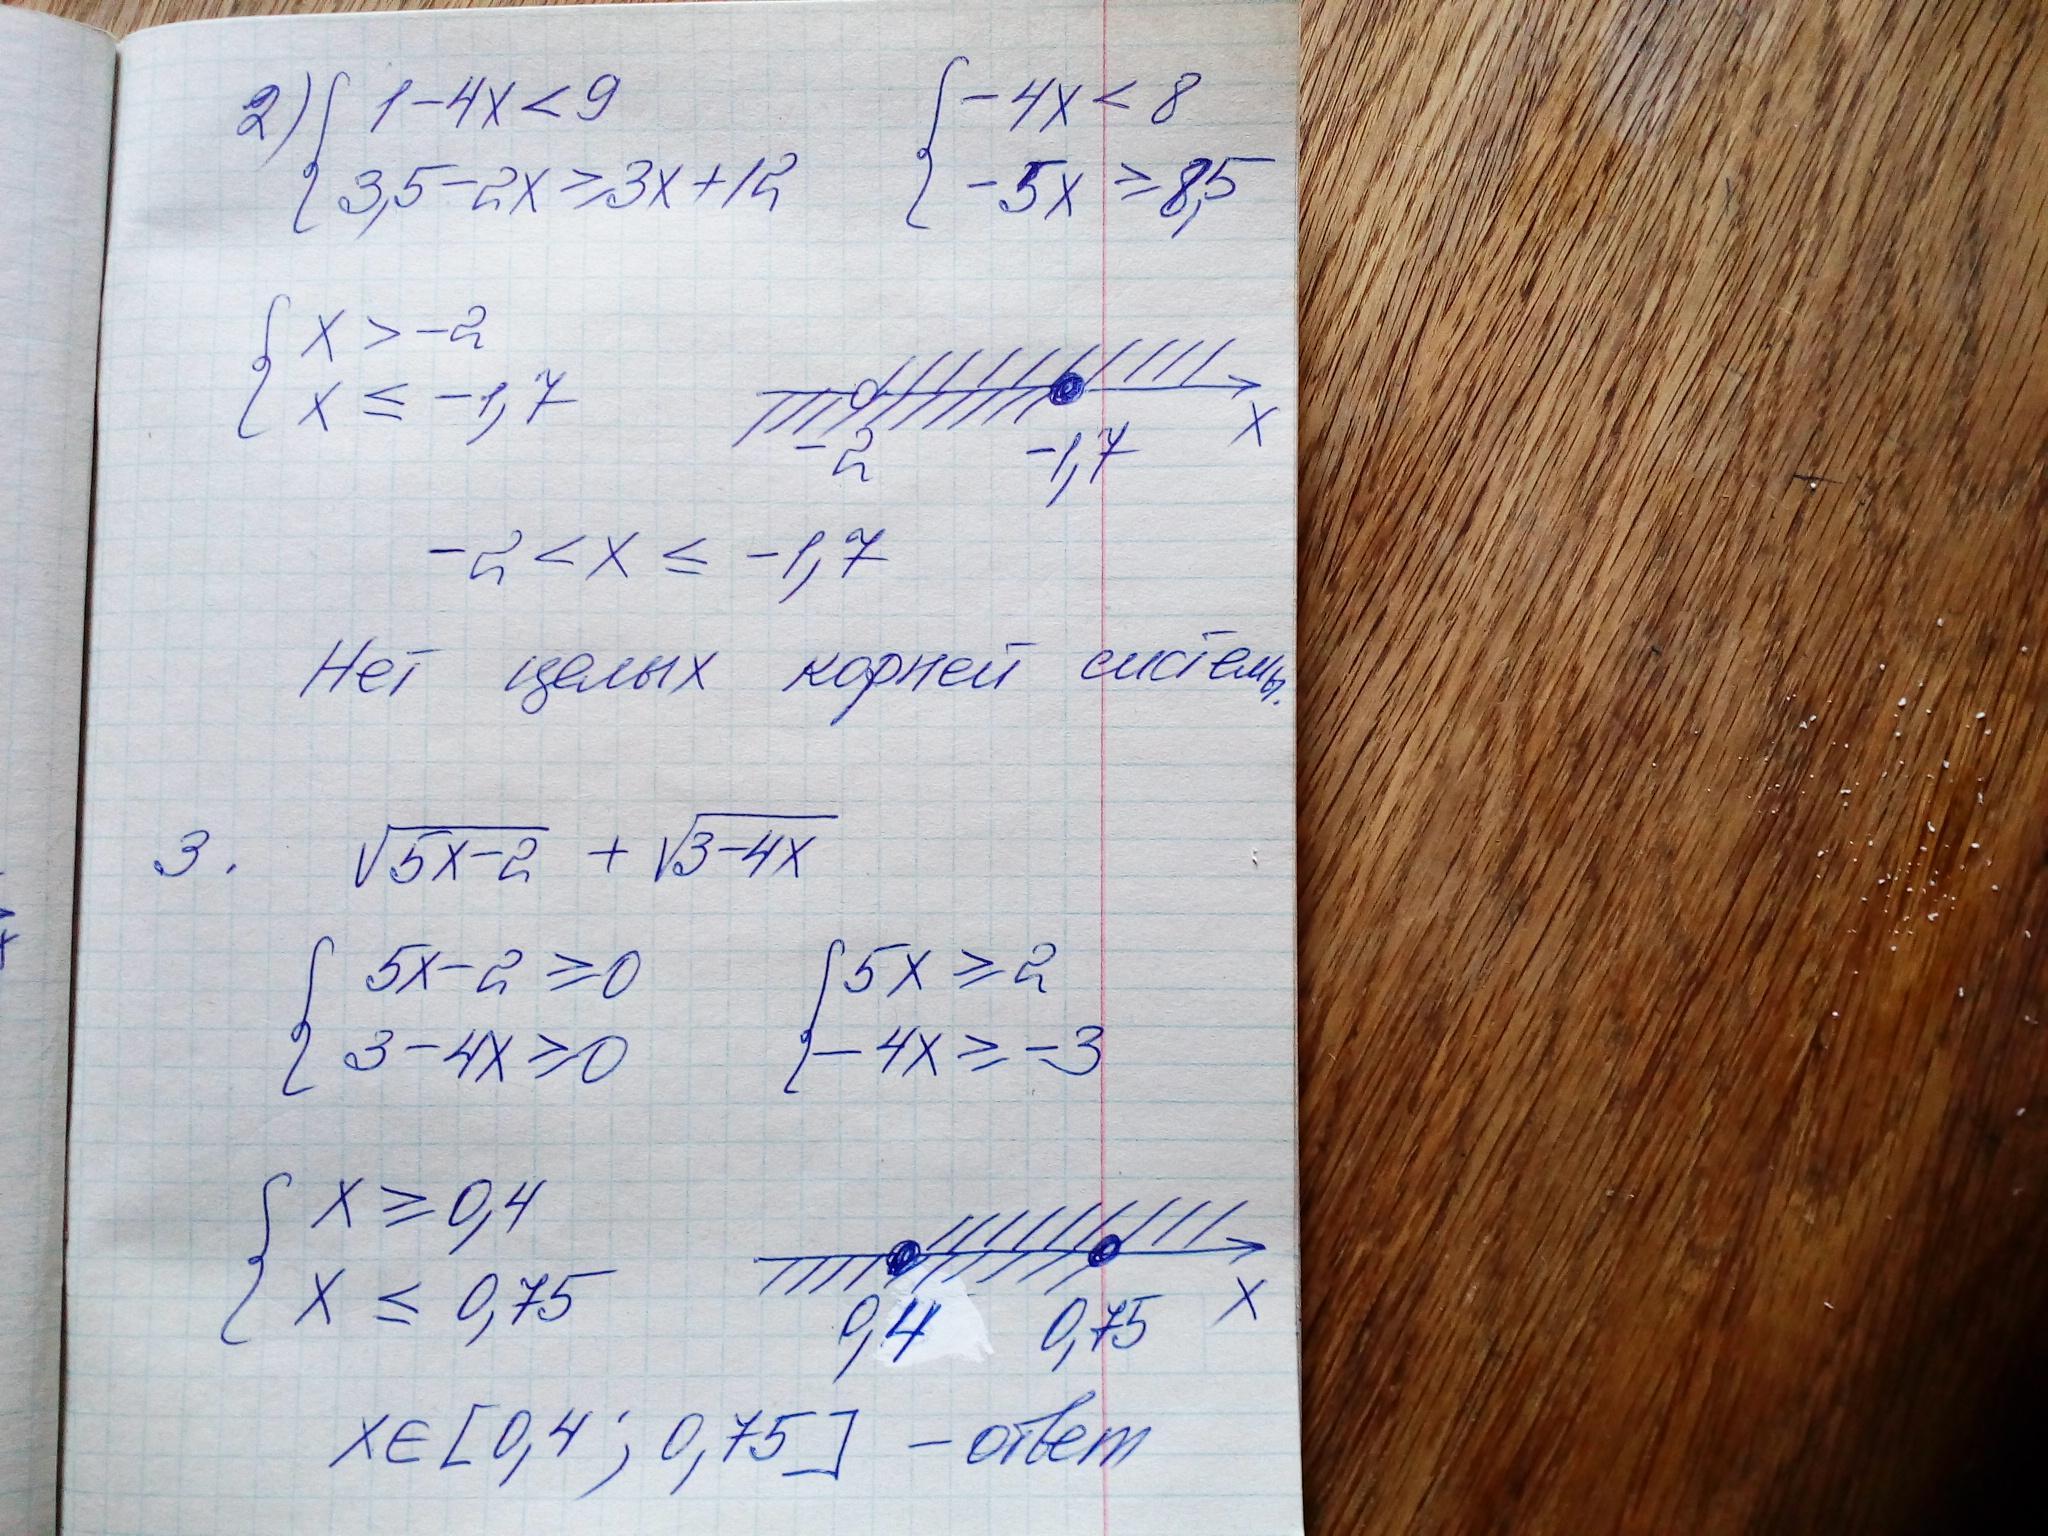 2) { 1-4x<9 { -4x<8
3,5-2x≥3x+12 -5x≥8,5
{ x>-2
x≤-1,7
-2 -1,7 x
-2<x≤-1,7
Нет целых корней системы.
3. √5x-2 + √3-4x
{ 5x-2≥0 { 5x≥2
3-4x≥0 -4x≥-3
{ x≥0,4
x≤0,75
0,4 0,75 x
x∈[0,4; 0,75] - ответ